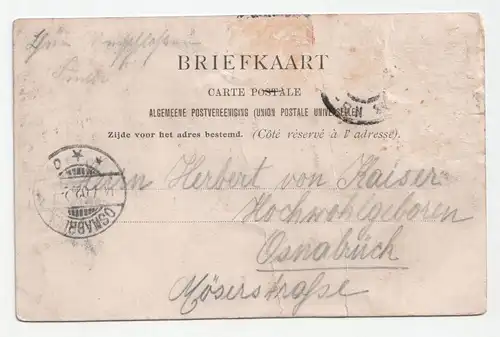 BRIEFKAART
CARTE POSTALE
ALGEMEENE POSTVEREENIGING (UNION POSTALE UNIVERSELLE)
Zijde voor het adres bestemd. (Côté réservé à l'adresse).
OSNABR
Herrn Herbert von Kaiser
Hochwohlgeboren
Osnabrück
Möserstraße